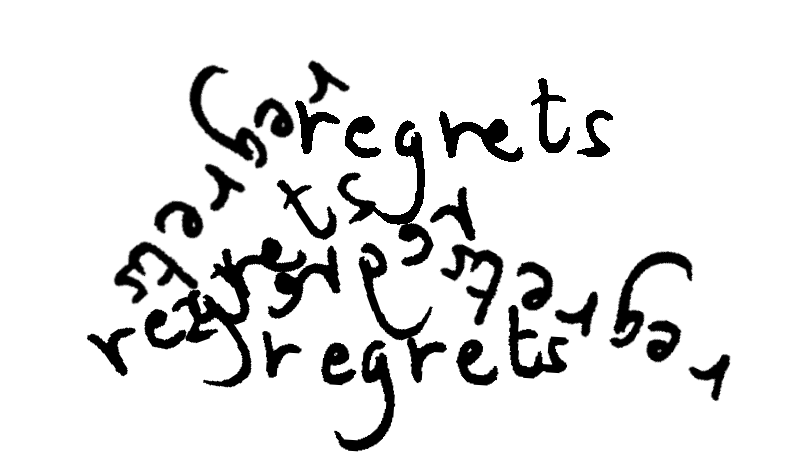 regrets
regrets
regrets
regrets
regrets
regrets